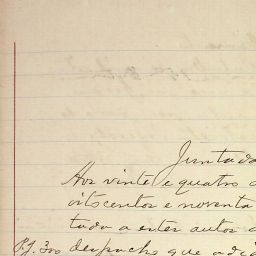 Juntada
Aos vinte e quatro d
oitocentos e noventa
tado a estes autos o
P.J. 300 despacho que adia